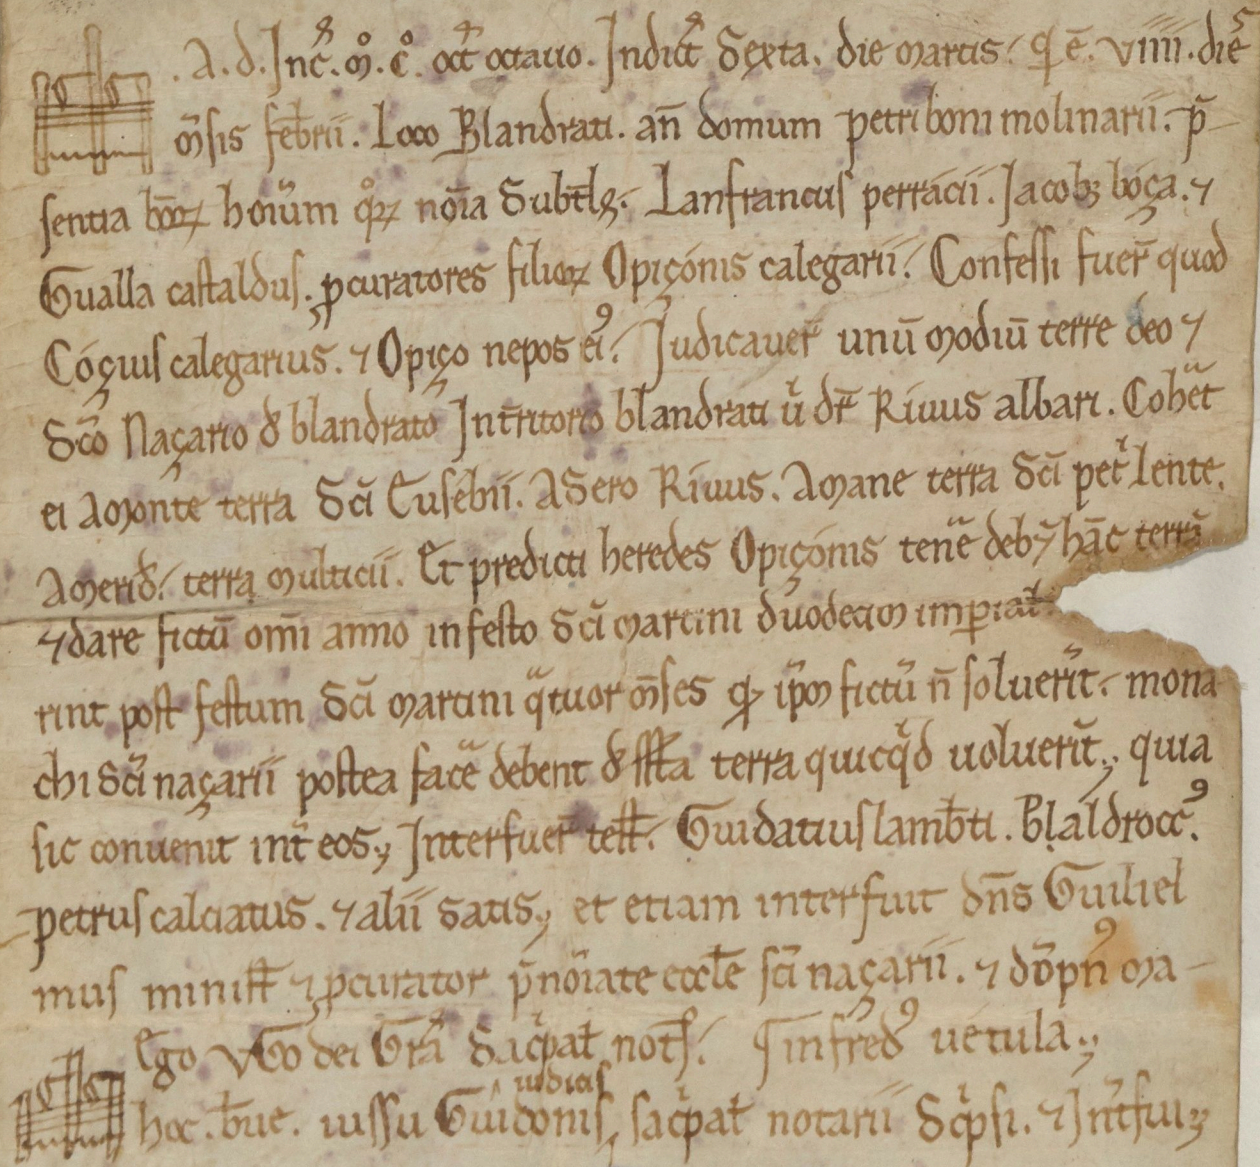 . A. d. Inc̄. m̊. c̊. oct̄ octauo. Indict̄ Sexta. die martis. q̄ ē. viiii. dieƷ
m̄sis feb̄rii. Loco Blandrati. an̄ domum petri boni molinarii. p̄
sentia boꝝ hoīum qoꝝ noīa subtꝰ. Lanfrancus perracii. Jacobꝫ boça. ⁊
Gualla castaldus. ꝓcuratores filioꝝ Opiçónis calegarii. Confessi fuer̄ quod
Cóçius calegarius. ⁊ Opiço nepos eiꝰ. Judicauer̄ unū modiū terre deo ⁊
Sc̄o Naçario đ blandrato Jn t̄ritorio blandrati u̓ dr̄ Riuus albari. Cohēt
ei A monte terra Sc̄i Eusebii. A Sero Riuus. A mane terra Sc̄i pet̓ lente.
A merid̄. terra multicii. Et predicti heredes Opiçónis tenē deb̄ hāc terrā
⁊ dare fictū om̄i anno in festo Sc̄i martini duodecim imꝑial̄
rint post festum Sc̄i martini q̄tuor m̄ses ip̄m fictū n̄ soluerīt. mona
chi Sc̄i naçarii postea facē debent đ terra quicq̓d uoluerīt. quia
sic conuenit int̄ eos. Interfuer̄ test̄. Guidatius lamb̄ti.
petrus calciatus. ⁊ alii satis. et etiam interfuit dn̄s Guiliel
mus minist̄ ⁊ ꝓcurator p̄noīate eccl̄e sc̄i naçarii. ⁊ ma-
Ego vGo dei Gr̄a Sac̓pal̄ not̄. Ginfredꝰ uétula.
iudicis
hoc. b̄ue. iussu Guidonis sac̓pal̄ notarii Sc̓psi. ⁊ Jnt̄fui.